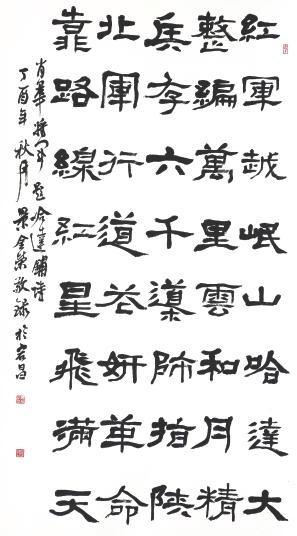 紅軍越岷山哈達大
整編萬里雲和月精
兵存六千導師指陝
北軍行道花妍革命
靠路線紅星飛滿天
肖華將軍題哈達鋪詩
丁酉年秋月景全榮敬錄於宕昌